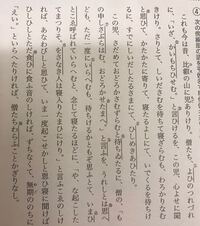 これも今は昔、比叡の山に児ありけり。僧たち、よひのつれづれ
に、「いざ、かいもちひせむ。」と言ひけるを、この児、心よせに聞
きけり。さりとて、しいださむを待ちて寝ざらむも、わろかりなむ
と思ひて、かたかたに寄りて、寝たるよしにて、いでくるを待ちけ
るに、すでにしいだしたるさまにて、ひしめきあひたり。
この児、さだめておどろかさむずらむと待ちゐたるに、僧の、「も
の申しさぶらはむ。おどろかせたまへ。」と言ふを、うれしとは思へ
ども、ただ一度にいらへむも、待ちけるかともぞ思ふとて、いまひ
とこゑ呼ばれていらへむと、念じて寝たるほどに、「や、な起こした
てまつりそ。をさなき人は寝入りたまひにけり。」と言ふこゑのしけ
れば、あなわびしと思ひて、いま一度起こせかしと思ひ寝に聞けば、
ひしひしとただ食ひに食ふ音のしければ、ずちなくて、無期ののちに、
「えい。」といらへたりければ、僧たち笑ふことかぎりなし。